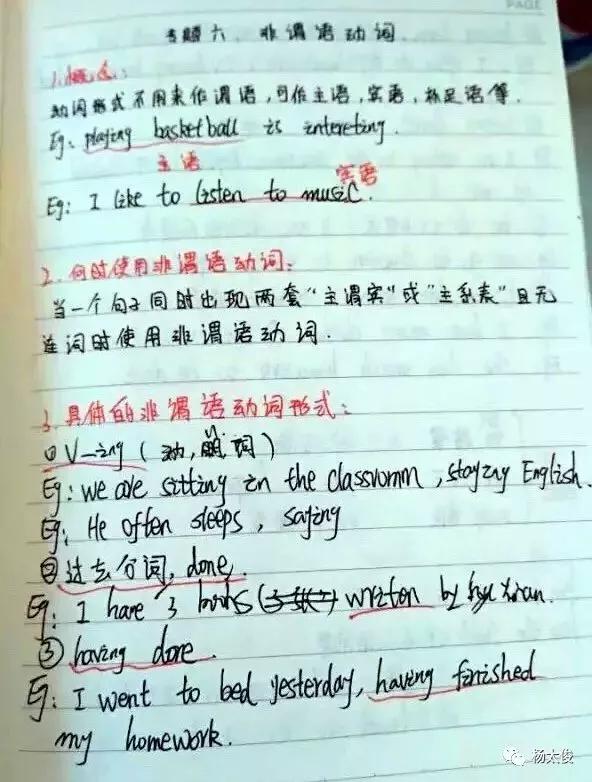 PAGE
专题六、非谓语动词
1.概念:
动词形式不用来作谓语,可作主语,宾语,补足语等.
Eg: playing basketball is intereting.
主语
宾语
Eg: I like to listen to music.
2.何时使用非谓语动词:
当一个句子同时出现两套"主谓宾"或"主系表"且无
连词时使用非谓语动词.
3.具体的非谓语动词形式:
① V-ing (动, 词)
Eg: we are sitting in the classromm, staying English.
Eg: He often sleeps, saying
②过去分词, done.
Eg: I have 3 books written by
③ having done.
Eg: I went to bed yesterday, having finished
my homework.
杨太俊